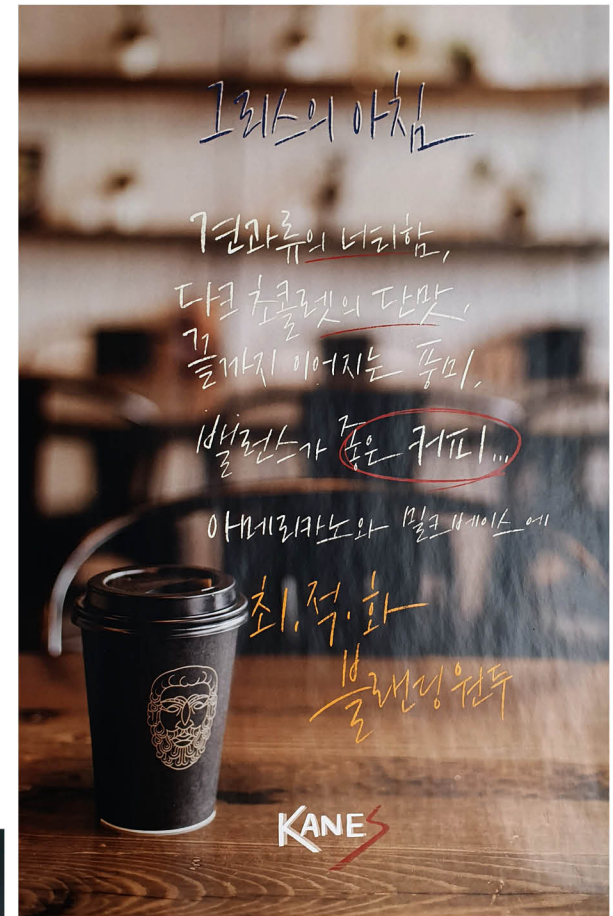 그리스의 아침
견과류의 너티함,
다크 초콜렛의 단맛,
끝까지 이어지는 풍미,
밸런스가 좋은 커피...
아메리카노와 밀크베이스에
최.적.화
블랜딩원두
KANES